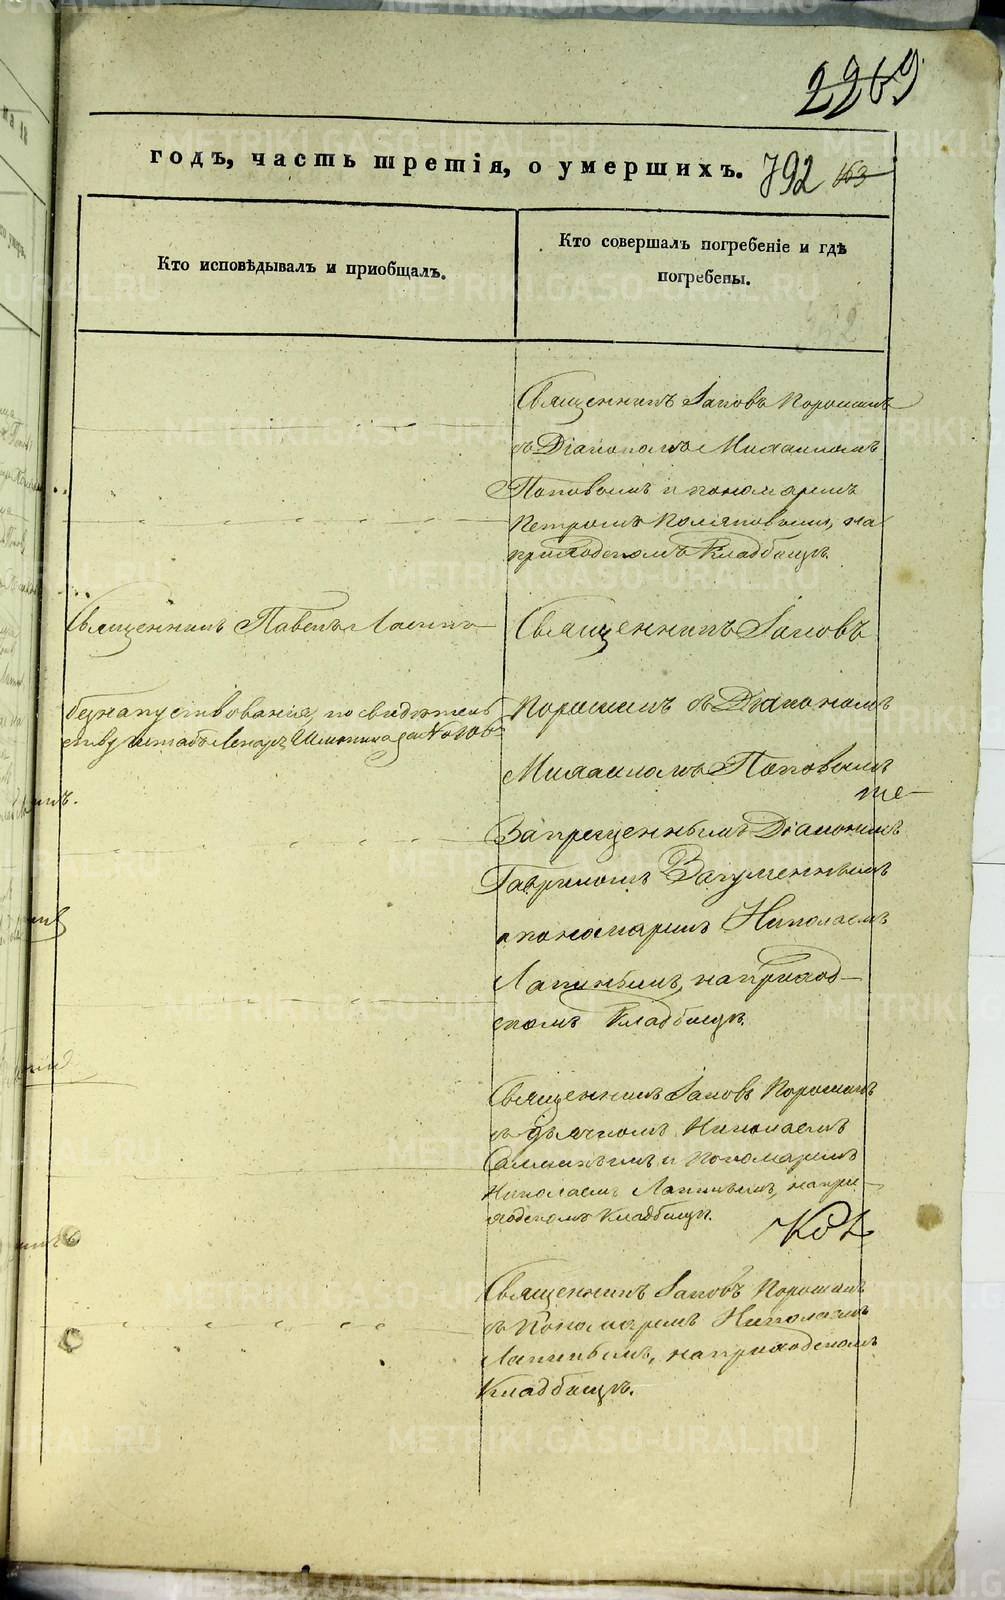 2269
годъ, часть третія, о умершихъ. 792 163
Кто исповѣдывалъ и приобщалъ.
Кто совершалъ погребеніе и гдѣ
погребены.
392
Священникъ Іаковъ Порошинъ
съ Діакономъ Михаиломъ
Поповымъ и пономаремъ
Петромъ на
приходскомъ Кладбищѣ.
Священникъ Павелъ
Священникъ Іаковъ
безнапутствованія, по свидѣтель
ству штабъ Лекаря за №
Порошинъ съ Діакономъ
Михаиломъ Поповымъ
Запрещеннымъ Діакономъ
Гавриломъ Загуменнымъ
и пономаремъ Николаемъ
Лапинымъ, на приход-
скомъ Кладбищѣ.
Священникъ Іаковъ Порошинъ
съ дьячкомъ Николаемъ
и Пономаремъ
Николаемъ Лапинымъ, на при-
ходскомъ Кладбищѣ.
Священникъ Іаковъ Порошинъ
съ Пономаремъ Николаемъ
Лапинымъ, на приходскомъ
Кладбищѣ.
METRIKI.GASO-URAL.RU